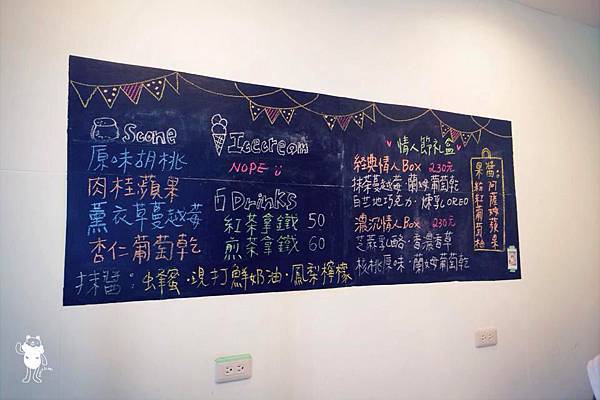 Scone
原味胡桃
肉桂蘋果
薰衣草蔓越莓
杏仁葡萄乾
抹醬：蜂蜜·現打鮮奶油·鳳梨檸檬
Icecream
NOPE
Drinks
紅茶拿鐵 50
煎茶拿鐵 60
情人節礼盒
經典情人Box 230元
抹茶蔓越莓·蘭姆葡萄乾
自芸地巧克力·煉乳OREO
濃沉情人Box 230元
芝蔴乳酪·香濃香草
核桃原味·蘭姆葡萄乾
果醬：阿薩姆蘋果
紅葡萄柚